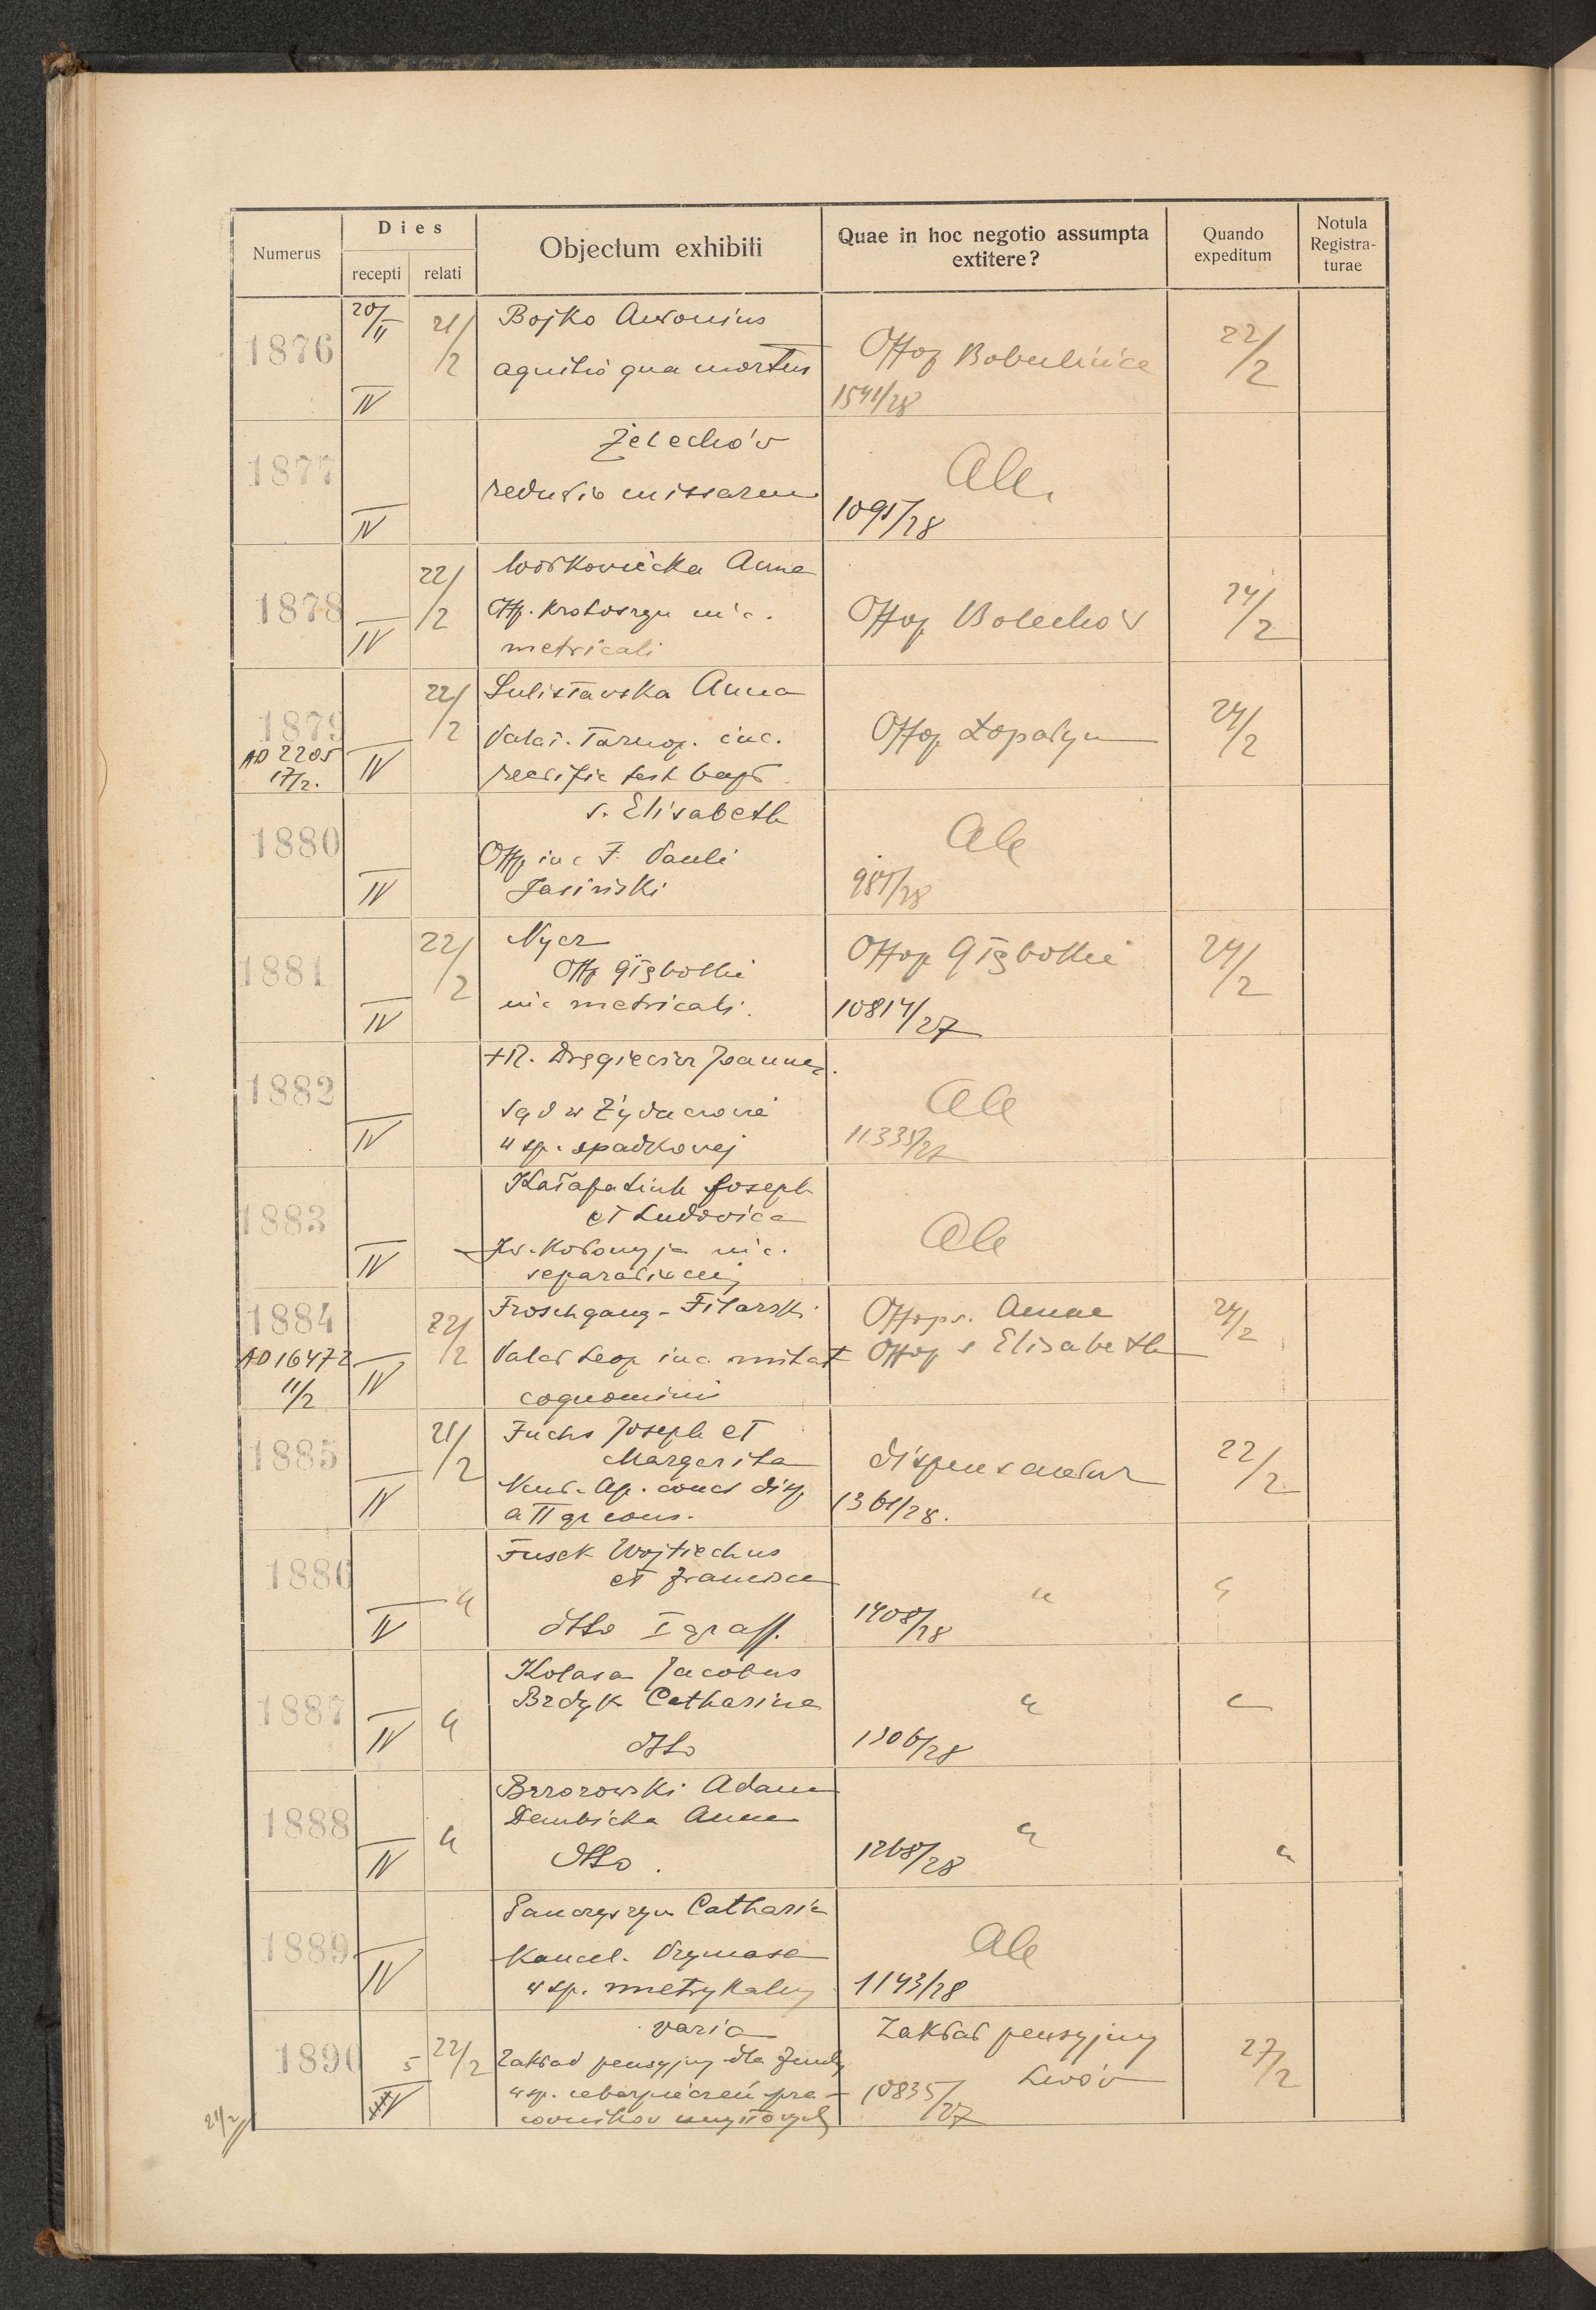 Numerus
Dies
recepti
relati
Objectum exhibiti
Quae in hoc negotio assumpta
extitere?
Quando
expeditum
Notula
Registra-
turae
1876
20/II
IV
21/2
Bojko Antonius
agnitio qua mortuus
Offop Bobulińce
1541/28
22/2
1877
IV
Żelechów
reductio missarum
Ale
1095/28
1878
IV
22/2
Anna
Off. Krotoszyn
metricali
Offop Bolechów
24/2
1879
AD 2205
17/2.
IV
22/2
Sulisławska Anna
Palat. Tarnop. inc.
rectific test bapt
Offop Łopatyn
24/2
1880
IV
s. Elisabeth
Off inc F. Pauli
Jasiński
Ale
985/28
1881
IV
22/2
Nycz
Off Głębokie
inc metricali.
Offop Głębokie
10814/27
24/2
1882
IV
Joannes.
Sąd w Żydaczowie
w sp. spadkowej
Ale
11335/27
1883
IV
Joseph
et Ludovica
separationis
Ale
1884
AD 16472
11/2
IV
22/2
Froschgang - Filarski
Palat Leop inc. mutat
cognominis
Offop s. Annae
Offop s Elisabeth
24/2
1885
IV
21/2
Fuchs Joseph et
Margarita
Nunt. Ap. conced disp
a II gr cons.
dispensantur
1361/28.
22/2
1886
IV
"
Fusek Wojtiechus
et Francisca
dtto I gr aff.
"
1408/28
"
1887
IV
"
Kolasa Jacobus
Brdyk Catharina
dtto
"
1306/28
"
1888
IV
"
Brzozowski Adam
Dembicka Anna
dtto.
"
1268/28
"
1889
IV
Catharina
Kancel. Prymasa
w sp. metrykalnej
Ale
1143/28
1890
5
IV
22/2
varia
Zakład pensyjny dla funkc
w sp. ubezpieczeń pra-
cowników umysłowych
Zakład pensyjny
Lwów
10835/27
27/2
21/2